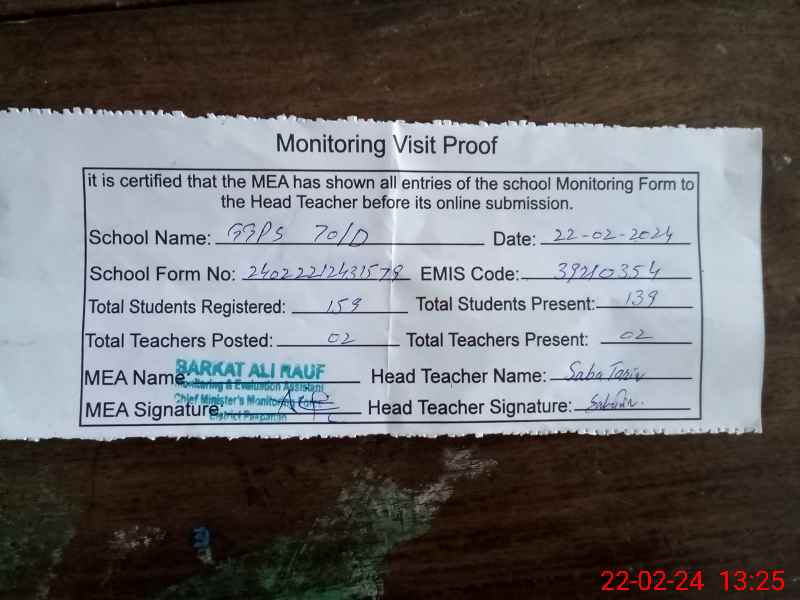 Monitoring Visit Proof
it is certified that the MEA has shown all entries of the school Monitoring Form to
the Head Teacher before its online submission.
School Name: GGPS 70/D Date: 22-02-2024
School Form No: 24022212431579 EMIS Code: 39210354
Total Students Registered: 159 Total Students Present: 139
Total Teachers Posted: 02 Total Teachers Present: 02
MEA Name: BARKAT ALI RAUF Head Teacher Name: Saba Tariq
Monitoring & Evaluation Assistant
Chief Minister's Monitoring Force
MEA Signature: Head Teacher Signature:
District Pakpattan
22-02-24 13:25